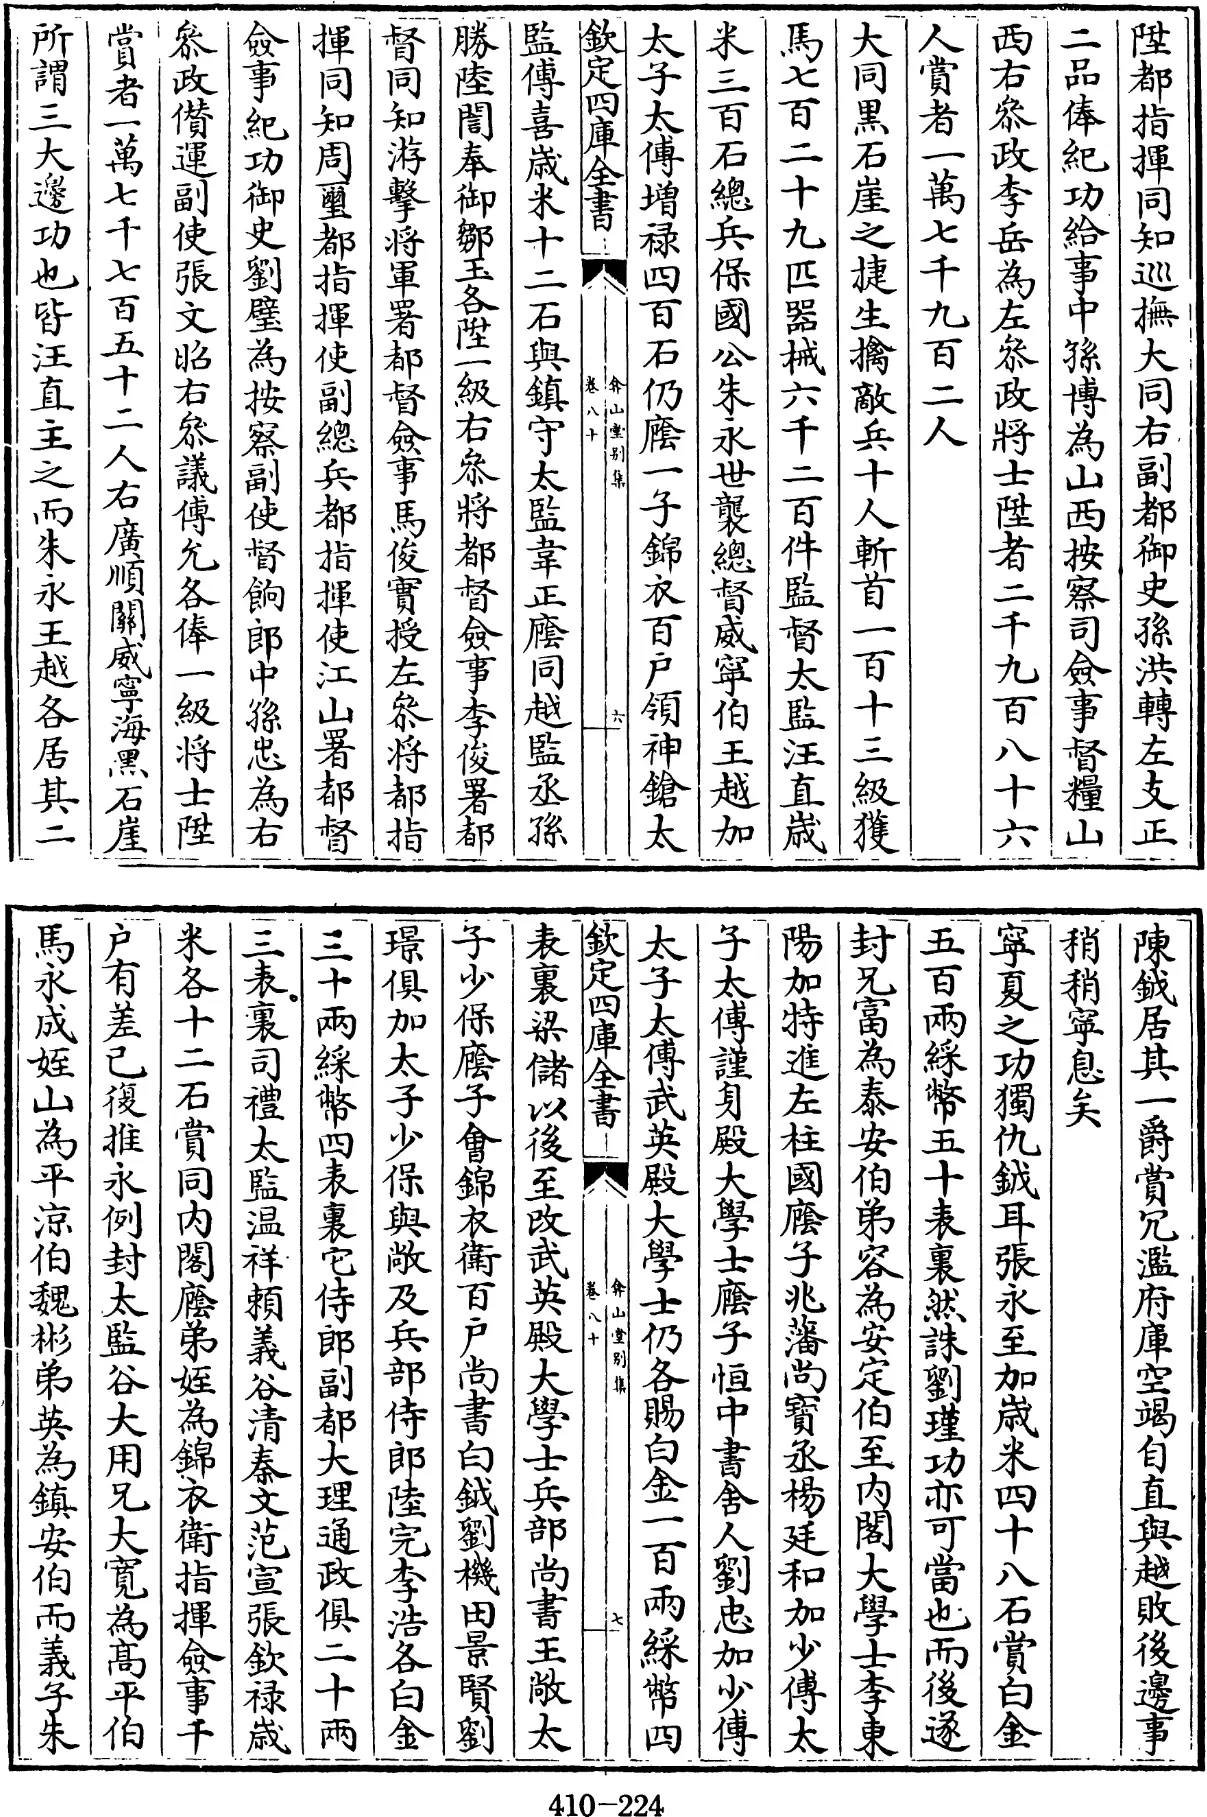 陞都指揮同知巡撫大同右副都御史孫洪轉左支正
二品俸紀功給事中孫博為山西按察司僉事督糧山
西右叅政李岳為左叅政將士陞者二千九百八十六
人賞者一萬七千九百二人
大同黑石崖之捷生擒敵兵十人斬首一百十三級獲
馬七百二十九匹器械六千二百件監督太監汪直歳
米三百石總兵保國公朱永世襲總督威寧伯王越加
太子太傅增禄四百石仍廕一子錦衣百户領神鎗太
欽定四庫全書
弇山堂别集
卷八十
六
監傅喜歳米十二石與鎮守太監韋正廕同越監丞孫
勝陸誾奉御鄒玉各陞一級右叅將都督僉事李俊署都
督同知游擊將軍署都督僉事馬俊實授左叅將都指
揮同知周璽都指揮使副總兵都指揮使江山署都督
僉事紀功御史劉璧為按察副使督餉郎中孫忠為右
叅政儹運副使張文昭右叅議傅允各俸一級將士陞
賞者一萬七千七百五十二人右廣順關威寧海黑石崖
所謂三大邊功也皆汪直主之而朱永王越各居其二
陳鉞居其一爵賞冗濫府庫空竭自直與越敗後邊事
稍稍寧息矣
寧夏之功獨仇鉞耳張永至加歳米四十八石賞白金
五百兩綵幣五十表裏然誅劉瑾功亦可當也而後遂
封兄富為泰安伯弟容為安定伯至内閣大學士李東
陽加特進左柱國廕子兆蕃尚寳丞楊廷和加少傅太
子太傅謹身殿大學士廕子恒中書舍人劉忠加少傅
太子太傅武英殿大學士仍各賜白金一百兩綵幣四
欽定四庫全書
弇山堂别集
卷八十
七
表裏梁儲以後至改武英殿大學士兵部尚書王敞太
子少保廕子會錦衣衛百户尚書白鉞劉機田景賢劉
璟俱加太子少保與敞及兵部侍郎陸完李浩各白金
三十兩綵幣四表裏它侍郎副都大理通政俱二十兩
三表裏司禮太監温祥頼義谷清秦文范宣張欽禄歳
米各十二石賞同内閣廕弟姪為錦衣衛指揮僉事千
户有差已復推永例封太監谷大用兄大寛為髙平伯
馬永成姪山為平凉伯魏彬弟英為鎮安伯而義子朱
410-224